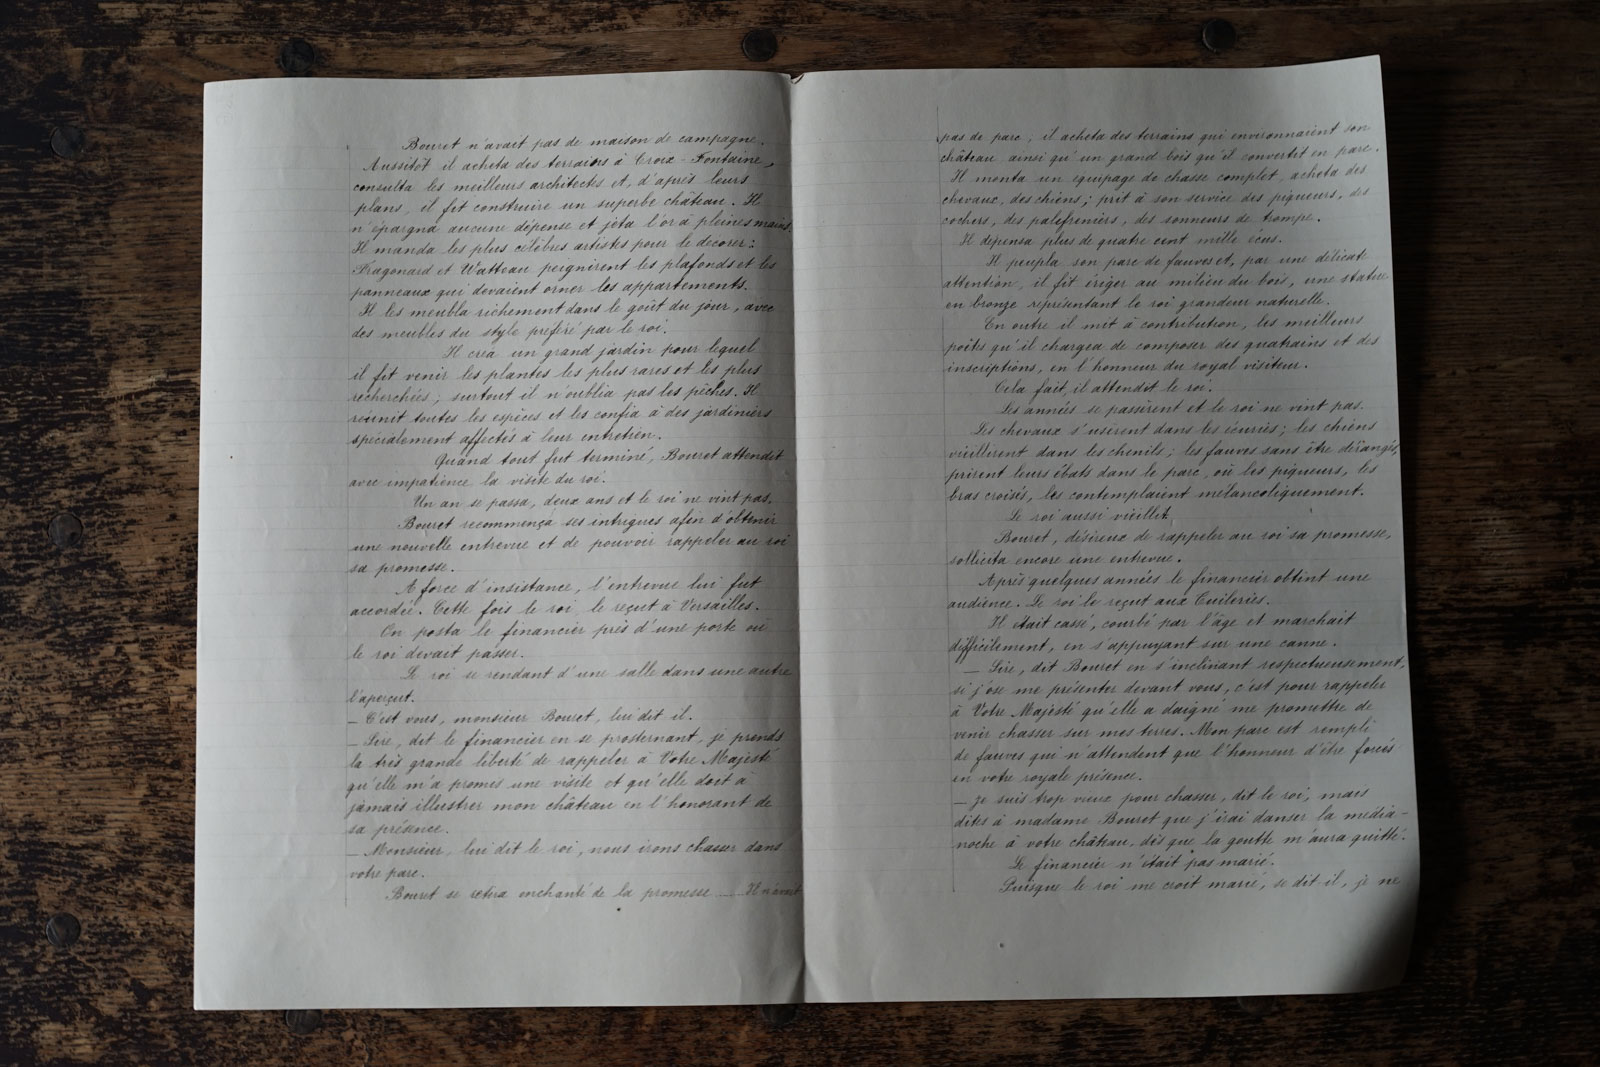 Bouret n'avait pas de maison de campagne.
Aussitôt il acheta des terrains à Croix-Fontaine,
consulta les meilleurs architectes et, d'après leurs
plans, il fit construire un superbe château. Il
n'épargna aucune dépense et jeta l'or à pleines mains.
Il manda les plus célèbres artistes pour le décorer :
Fragonard et Watteau peignirent les plafonds et les
panneaux qui devaient orner les appartements.
Il les meubla richement dans le goût du jour, avec
des meubles du style préféré par le roi.
Il créa un grand jardin pour lequel
il fit venir les plantes les plus rares et les plus
recherchées ; surtout il n'oublia pas les pêches. Il
réunit toutes les espèces et les confia à des jardiniers
spécialement affectés à leur entretien.
Quand tout fut terminé, Bouret attendit
avec impatience la visite du roi.
Un an se passa, deux ans et le roi ne vint pas.
Bouret recommença ses intrigues afin d'obtenir
une nouvelle entrevue et de pouvoir rappeler au roi
sa promesse.
A force d'insistance, l'entrevue lui fut
accordée. Cette fois le roi, le reçut à Versailles.
On posta le financier près d'une porte où
le roi devait passer.
Le roi se rendant d'une salle dans une autre
l'aperçut.
— C'est vous, monsieur Bouret, lui dit il.
— Sire, dit le financier en se prosternant, je prends
la très grande liberté de rappeler à Votre Majesté
qu'elle m'a promis une visite et qu'elle doit à
jamais illustrer mon château en l'honorant de
sa présence.
— Monsieur, lui dit le roi, nous irons chasser dans
votre parc.
Bouret se retira enchanté de la promesse .... Il n'avait
pas de parc ; il acheta des terrains qui environnaient son
château ainsi qu'un grand bois qu'il convertit en parc.
Il monta un équipage de chasse complet, acheta des
chevaux, des chiens ; prit à son service des piqueurs, des
cochers, des palefreniers, des sonneurs de trompe.
Il dépensa plus de quatre cent mille écus.
Il peupla son parc de fauves et, par une délicate
attention, il fit ériger au milieu du bois, une statue
en bronze représentant le roi grandeur naturelle.
En outre il mit à contribution, les meilleurs
poètes qu'il chargea de composer des quatrains et des
inscriptions, en l'honneur du royal visiteur.
Cela fait, il attendit le roi.
Les années se passèrent et le roi ne vint pas.
Les chevaux s'usèrent dans les écuries ; les chiens
vieillirent dans les chenils ; les fauves sans être dérangés,
prirent leurs ébats dans le parc, où les piqueurs, les
bras croisés, les contemplaient mélancoliquement.
Le roi aussi vieillit.
Bouret, désireux de rappeler au roi sa promesse,
sollicita encore une entrevue.
Après quelques années le financier obtint une
audience. Le roi le reçut aux Tuileries.
Il était cassé, courbé par l'âge et marchait
difficilement, en s'appuyant sur une canne.
— Sire, dit Bouret en s'inclinant respectueusement,
si j'ose me présenter devant vous, c'est pour rappeler
à Votre Majesté qu'elle a daigné me promettre de
venir chasser sur mes terres. Mon parc est rempli
de fauves qui n'attendent que l'honneur d'être forcés
en votre royale présence.
— Je suis trop vieux pour chasser, dit le roi, mais
dites à madame Bouret que j'irai danser la média-
noche à votre château, dès que la goutte m'aura quitté.
Le financier n'était pas marié.
Puisque le roi me croit marié, se dit il, je ne